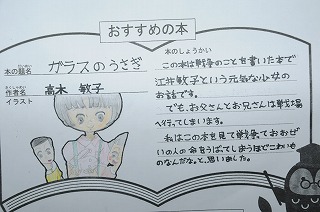 おすすめの本
本の題名 ガラスのうさぎ
作者名 高木 敏子
イラスト
本のしょうかい
この本は戦争のことを書いた本で
江井敏子という元気な少女の
お話です。
でも、お父さんとお兄さんは戦場
へ行ってしまいます。
私はこの本を見て戦争でおおぜ
いの人の命をうばってしまうほどこわいも
のなんだな。と思いました。